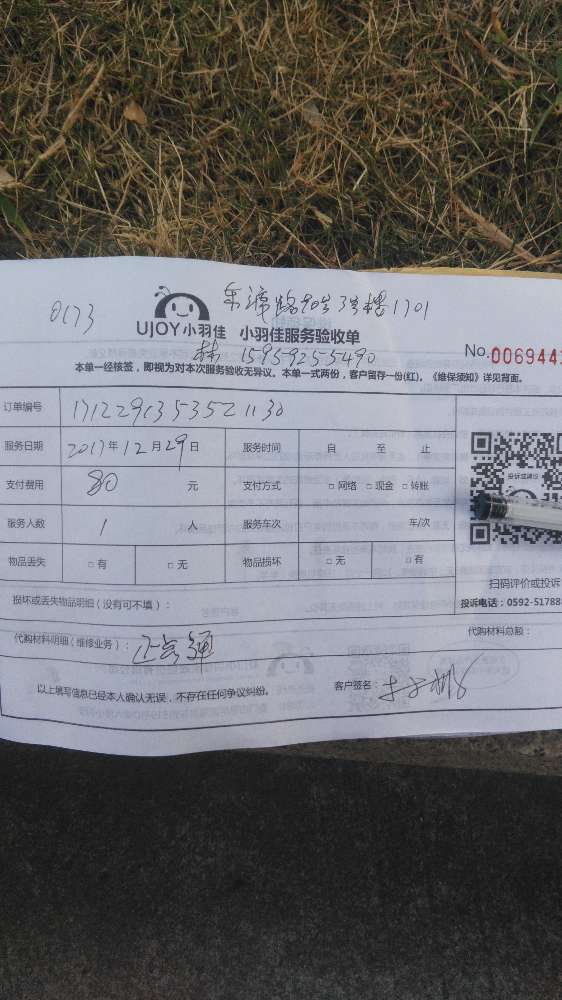 0173
路90号3号楼1701
UJOY小羽佳 小羽佳服务验收单
林 15959255490
No. 006944
本单一经核签，即视为对本次服务验收无异议。本单一式两份，客户留存一份(红)。《维保须知》详见背面。
订单编号
服务日期 2017年12月29日 服务时间 自 至 止
支付费用 80 元 支付方式 □网络 □现金 □转账
服务人数 1 人 服务车次 车/次
物品丢失 □有 □无 物品损坏 □无 □有
扫码评价或投诉
损坏或丢失物品明细（没有可不填）：
投诉电话：0592-51788
代购材料明细（维修业务）：
代购材料总额：
以上填写信息已经本人确认无误，不存在任何争议纠纷。
客户签名：